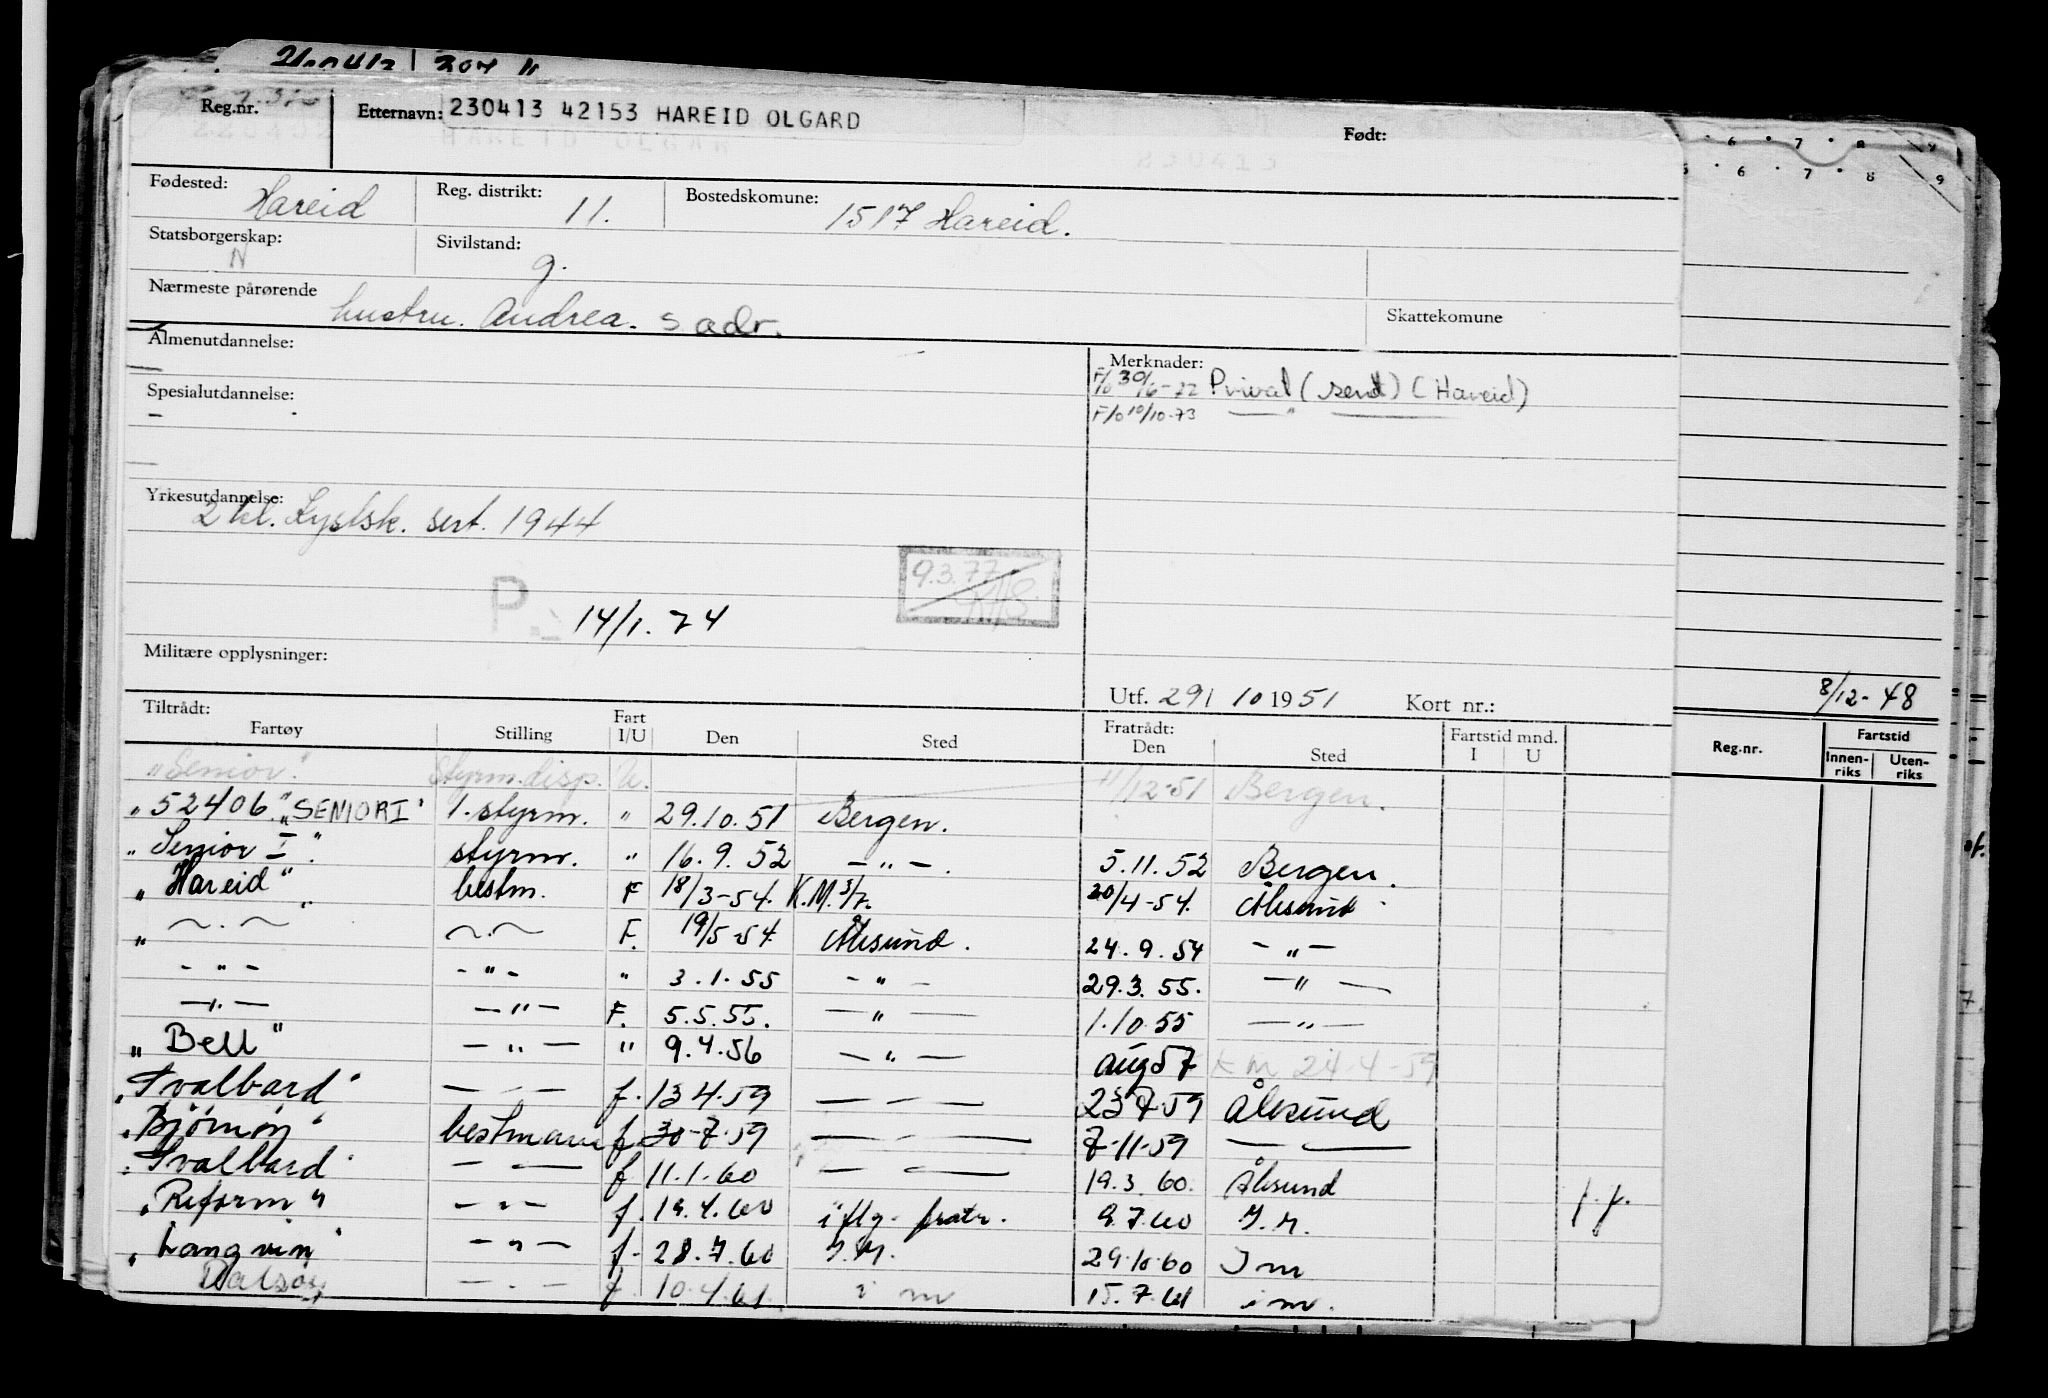 Reg.nr. Etternavn: 230413 42153 HAREID OLGARD Født:
Fødested: Hareid Reg. distrikt: 11. Bostedskomune: 1517 Hareid.
Statsborgerskap: N Sivilstand: g.
Nærmeste pårørende hustru. Andrea. s adr. Skattekomune
Almenutdannelse: Merknader:
Spesialutdannelse: (Hareid)
— F/o 10/10-73 — " —
Yrkesutdannelse: 2 kl. Kystsk. sert. 1944
9.3.77
P. 14/1.74
Militære opplysninger:
Utf. 29/ 10 1951 Kort nr.: 8/12-48
Tiltrådt: Fratrådt: Fartstid mnd. Reg.nr. Fartstid
Fartøy Stilling Fart I/U Den Sted Den Sted I U Innen-riks Uten-riks
"Senior" styrm. disp. U. 11/12-51 Bergen.
"52406" "SENIOR I" 1. styrm. " 29.10.51 Bergen.
"Senior I" styrm. " 16.9.52 — " — 5.11.52 Bergen.
"Hareid" bestm. F 18/3-54. K.M. 3/7. 20/4-54. Ålesund
" — . — — . — F. 19/5-54 Ålesund. 24.9.54 — " —
- " - - " - " 3.1.55 - " - 29.3.55. — " —
— " — — " — F. 5.5.55. — " — 1.10.55 — " —
"Bell" — " — " 9.4.56 — " — aug 57 K M 24-4-59
"Svalbard" — " — f. 13.4.59 — — — 23.7.59 Ålesund
"Bjørnøy" bestmann f 30-7-59 — — 7-11-59 — —
"Svalbard" — — f 11.1.60 — — 19.3.60. Ålesund
"Reform" — " — f. 19.4.60 i flg. fratr. 9.7.60 I.M. f.f.
"Langvin" — " — f. 28.7.60 I.M. 29.10.60 I m
Dalsøy — . — f 10.4.61 i m 15.7.61 i m.